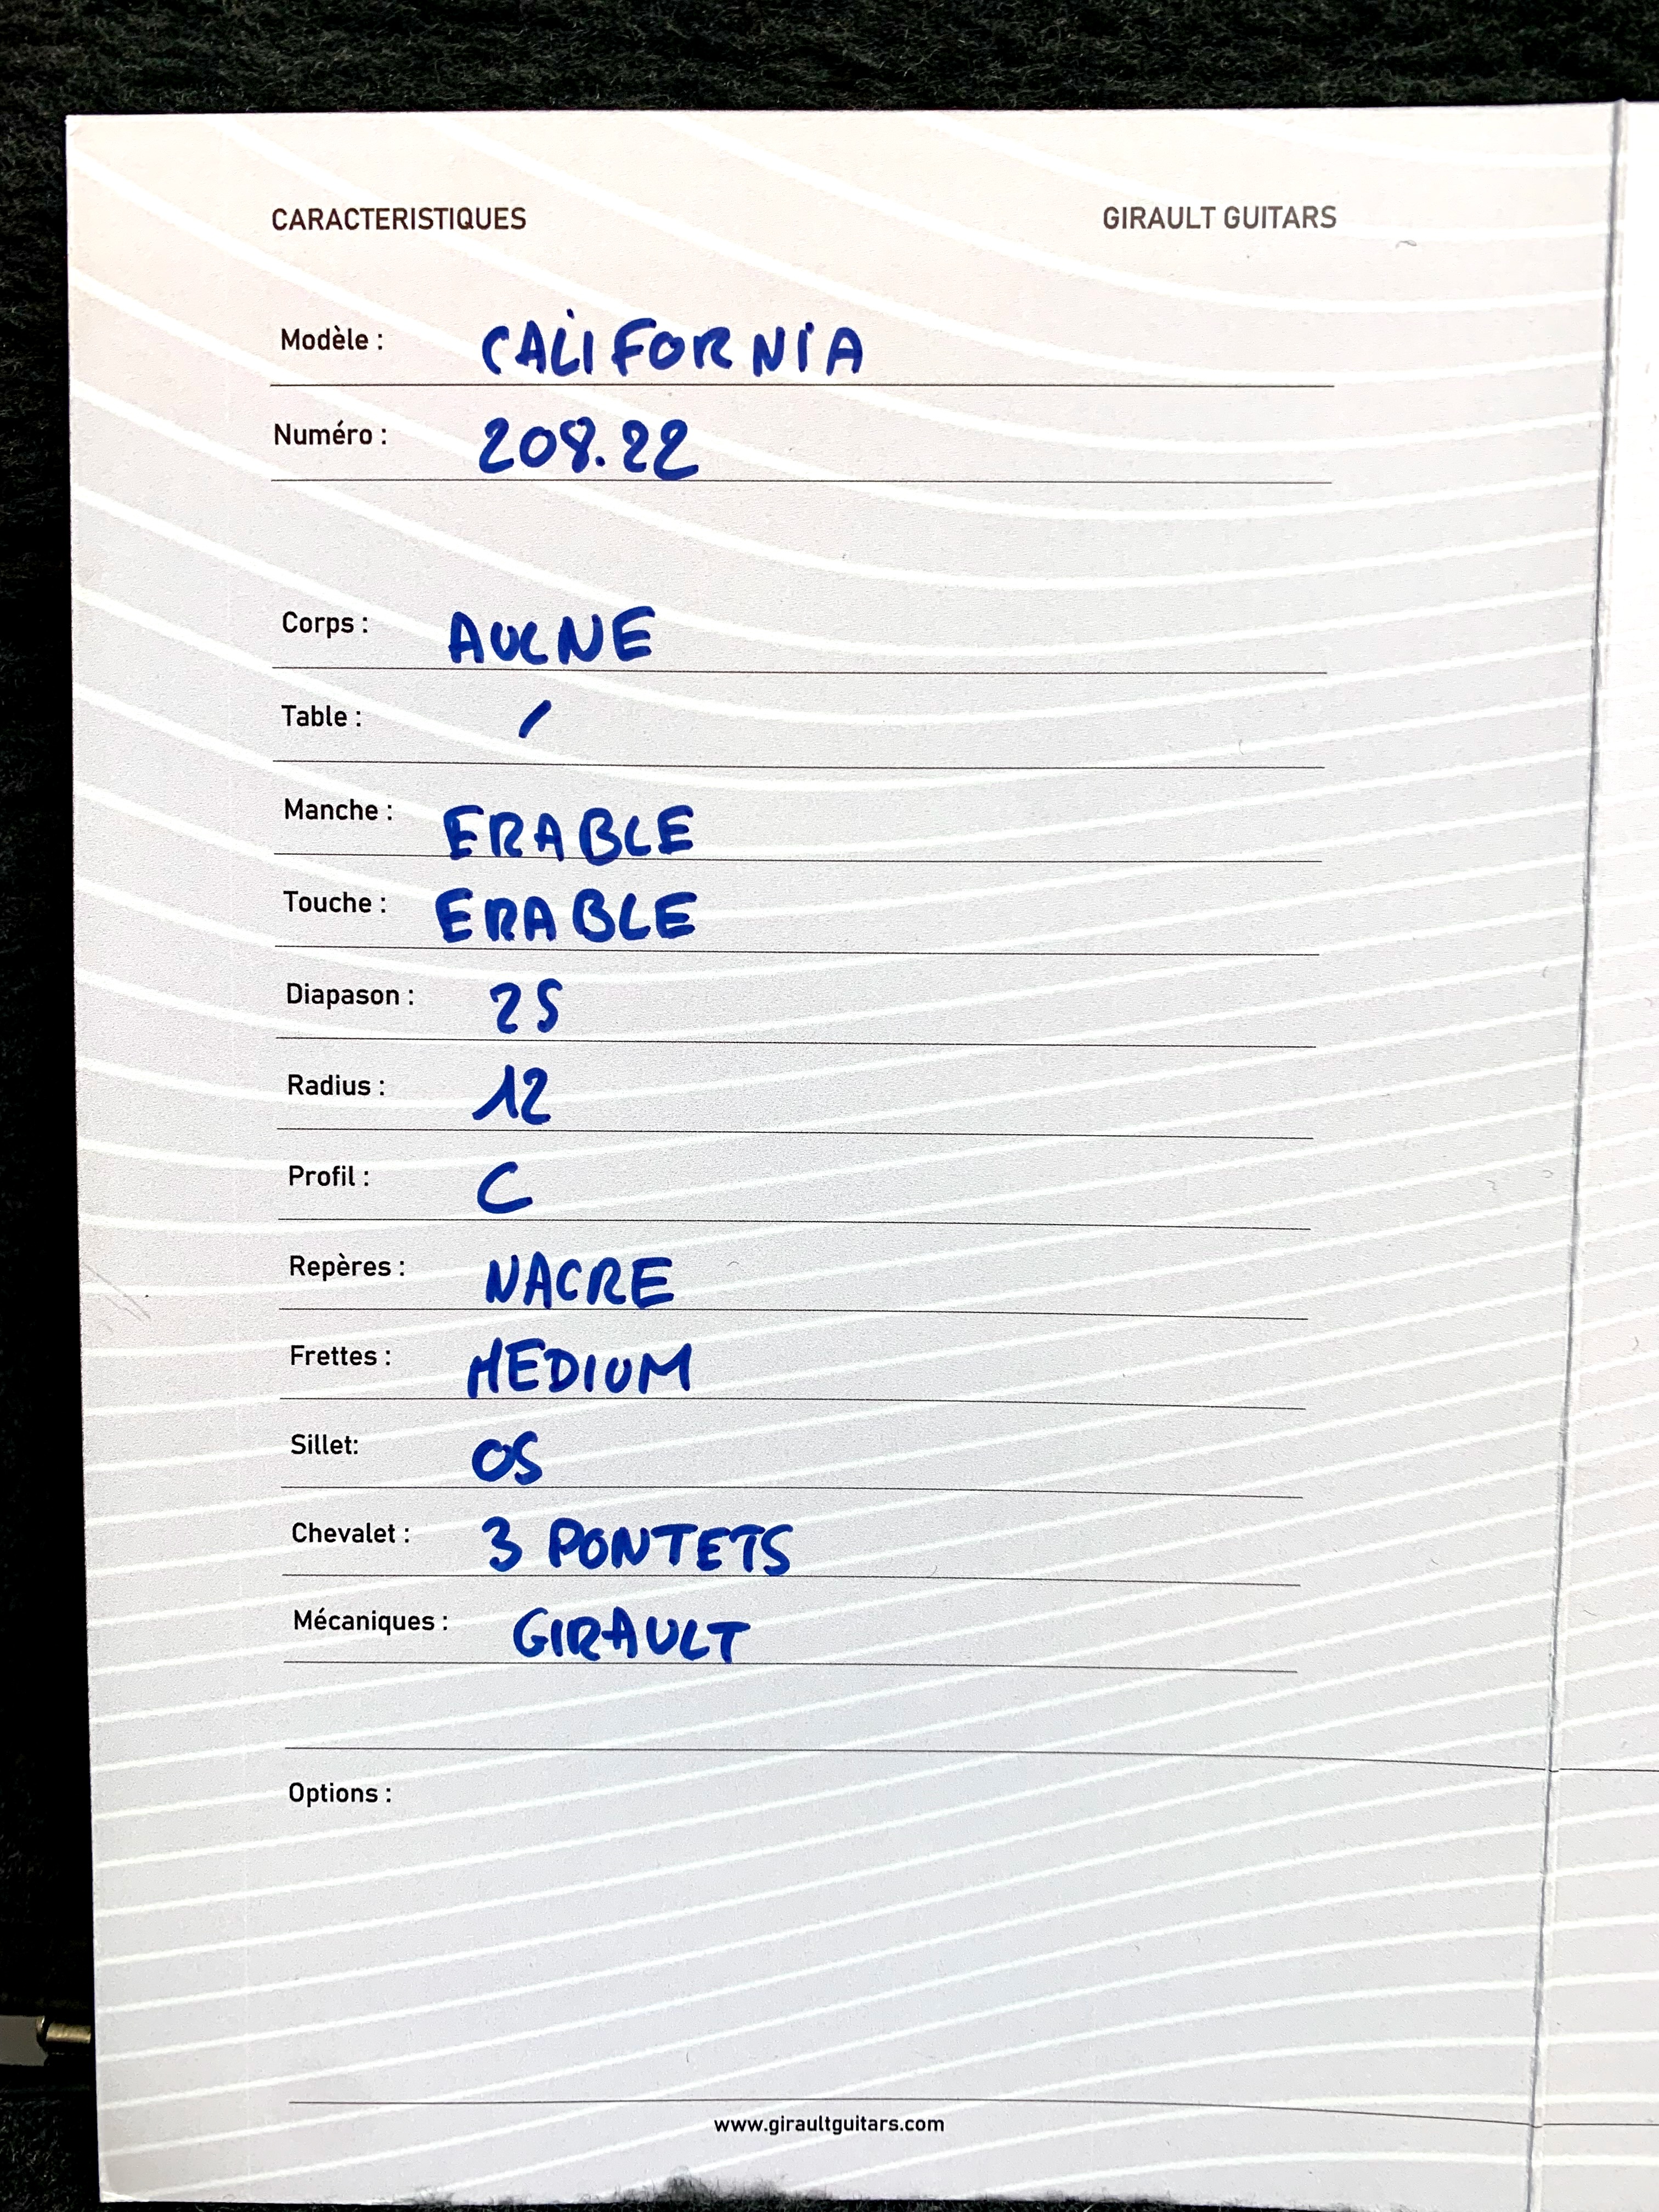 CARACTERISTIQUES GIRAULT GUITARS
Modèle : CALIFORNIA
Numéro : 208.22
Corps : AULNE
Table : /
Manche : ERABLE
Touche : ERABLE
Diapason : 25
Radius : 12
Profil : C
Repères : NACRE
Frettes : MEDIUM
Sillet: OS
Chevalet : 3 PONTETS
Mécaniques : GIRAULT
Options :
www.giraultguitars.com